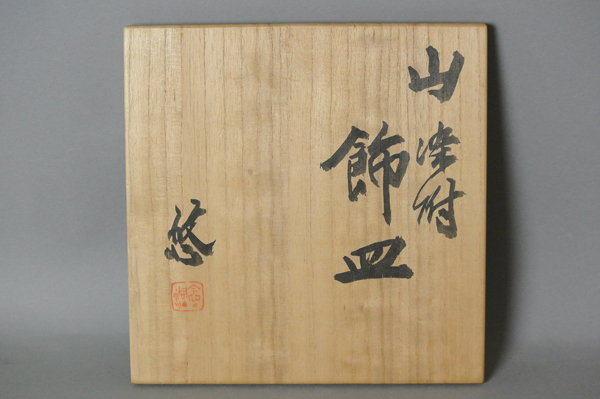 山染付
飾皿
悠